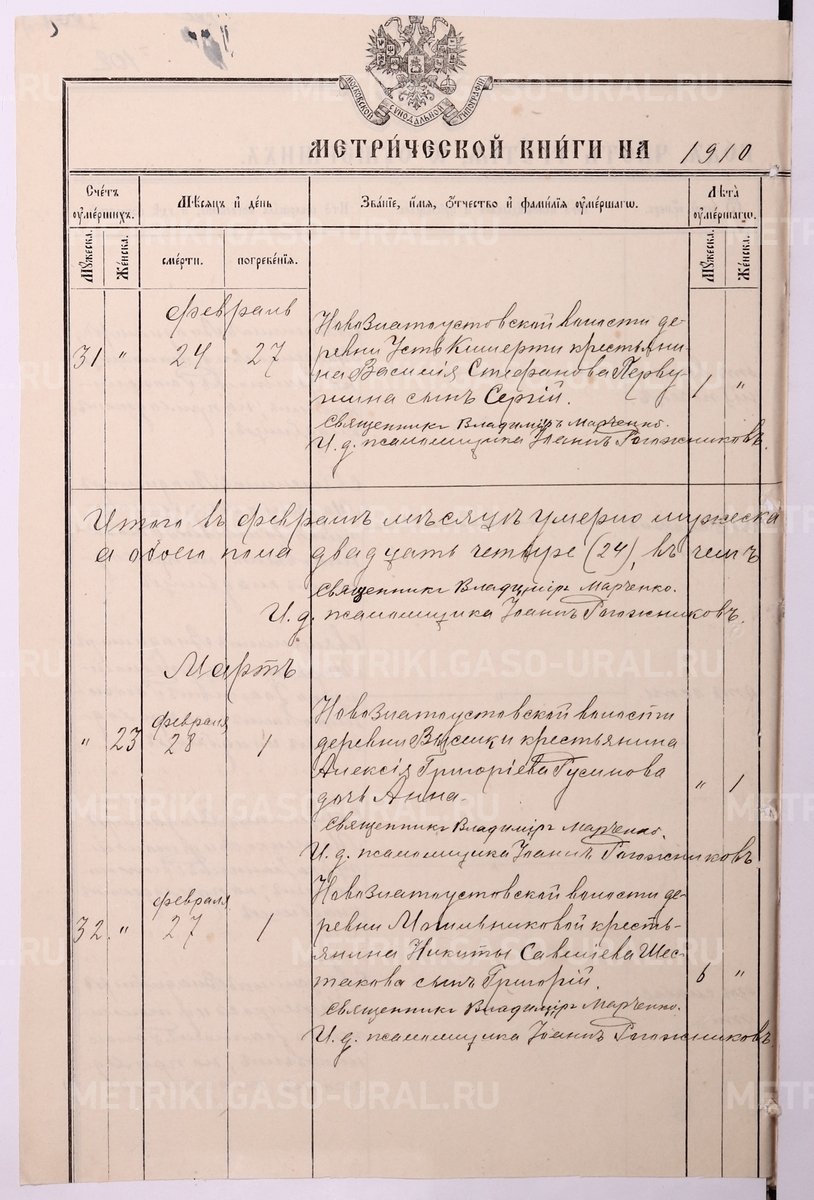 МОСКОВСКОЙ СѴНОДАЛЬНОЙ ТИПОГРАФІИ
МЕТРИ́ЧЕСКОЙ КНИ́ГИ НА 1910
Сче́тъ оуме́ршихъ.
Мѣ́сяцъ и҆ де́нь
Зва́нїе, и҆́мя, ѻ҆́тчество и҆ фами́лїя оуме́ршагѡ.
Лѣ́та̀ оуме́ршагѡ.
Му́жеска.
Же́нска.
сме́рти.
погребе́нїя.
Му́жеска.
Же́нска.
февраль
31 " 24 27
Новозлатоустовской волости де-
ревни Усть Кишерти крестьяни-
на Василія Стефанова Перву-
шина сынъ Сергій.
1 "
Священникъ Владиміръ Марченко.
И. д. псаломщика Іоаннъ Рогожниковъ.
Итого въ февралѣ мѣсяцѣ умерло мужеска
а обоего пола двадцать четыре (24), въ чемъ
Священникъ Владиміръ Марченко.
И. д. псаломщика Іоаннъ Рогожниковъ.
Мартъ
" 23 февраля 28 1
Новозлатоустовской волости
деревни Выселки крестьянина
Алексія Григоріева Гусинова
дочь Анна.
" 1
Священникъ Владиміръ Марченко.
И. д. псаломщика Іоаннъ Рогожниковъ
32. " февраля 27 1
Новозлатоустовской волости де-
ревни Мыльниковой кресть-
янина Никиты Савеліева Шес-
такова сынъ Григорій.
6 "
Священникъ Владиміръ Марченко.
И. д. псаломщика Іоаннъ Рогожниковъ.
METRIKI.GASO-URAL.RU